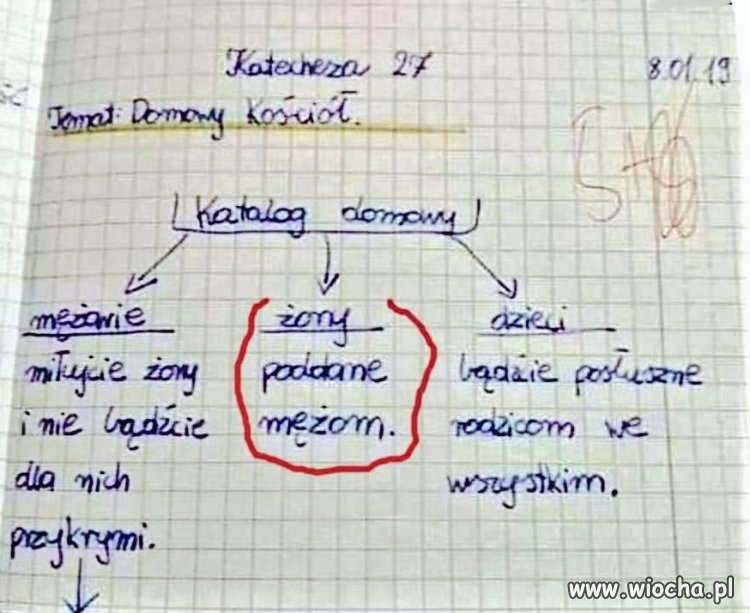 Katecheza 27 8.01.19
Temat: Domowy Kościół.
5+
Katalog domowy
mężowie żony dzieci
miłujcie żony poddane bądźcie posłuszne
i nie bądźcie mężom. rodzicom we
dla nich wszystkim.
przykrymi.
www.wiocha.pl